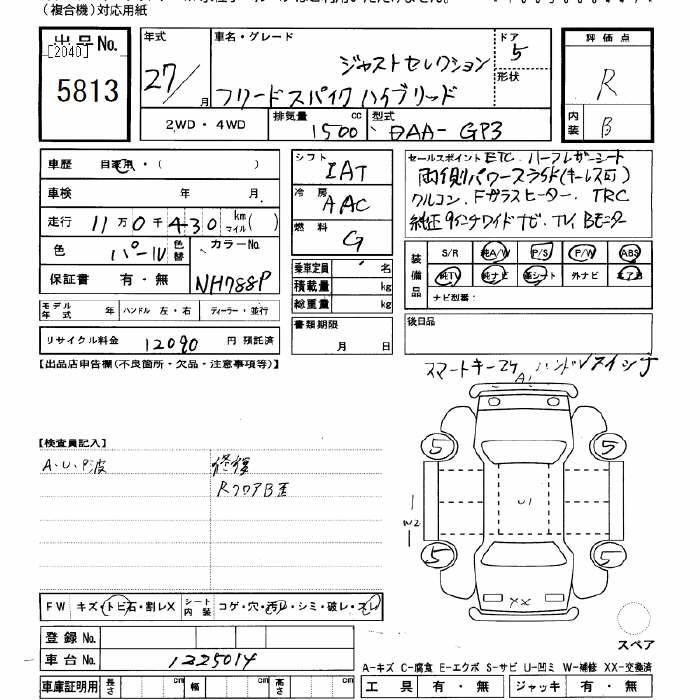 (複合機)対応用紙
出品No.
[2040]
5813
年式
27/
月
車名・グレード
ジャストセレクション
フリードスパイク ハイブリッド
ドア
5
形状
評価点
R
内装
B
2WD・4WD
排気量
1500
cc
型式
DAA-GP3
車歴
自家用・( )
車検
年
月
走行
11万0千430
km
マイル
( )
色
パール
色替
カラーNo.
NH788P
保証書
有・無
モデル年式
年
ハンドル 左・右
ディーラー・並行
リサイクル料金
12090
円 預託済
シフト
IAT
冷房
AAC
燃料
G
乗車定員
名
積載量
kg
総重量
kg
書類期限
月
日
セールスポイント ETC. ハーフレザーシート
両側パワースライド(キーレス可)
クルコン. Fガラスヒーター. TRC
純正9インチワイドナビ. TV. Bモニター
装備品
S/R
純A/W
P/S
P/W
ABS
純TV
純ナビ
革シート
外ナビ
エアB
ナビ型番:
後日品
【出品店申告欄(不良箇所・欠品・注意事項等)】
スマートキー2ケ
A1
【検査員記入】
A・U・P波
修復
RフロアB歪
5
5
5
5
U1
W2
XX
スペア
FW
キズ・トビ石・割レX
シート内装
コゲ・穴・汚レ・シミ・破レ・スレ
登録No.
車台No.
1225014
車庫証明用
長さ
cm
幅
cm
高さ
cm
A-キズ C-腐食 E-エクボ S-サビ U-凹ミ W-補修 XX-交換済
工具
有・無
ジャッキ
有・無